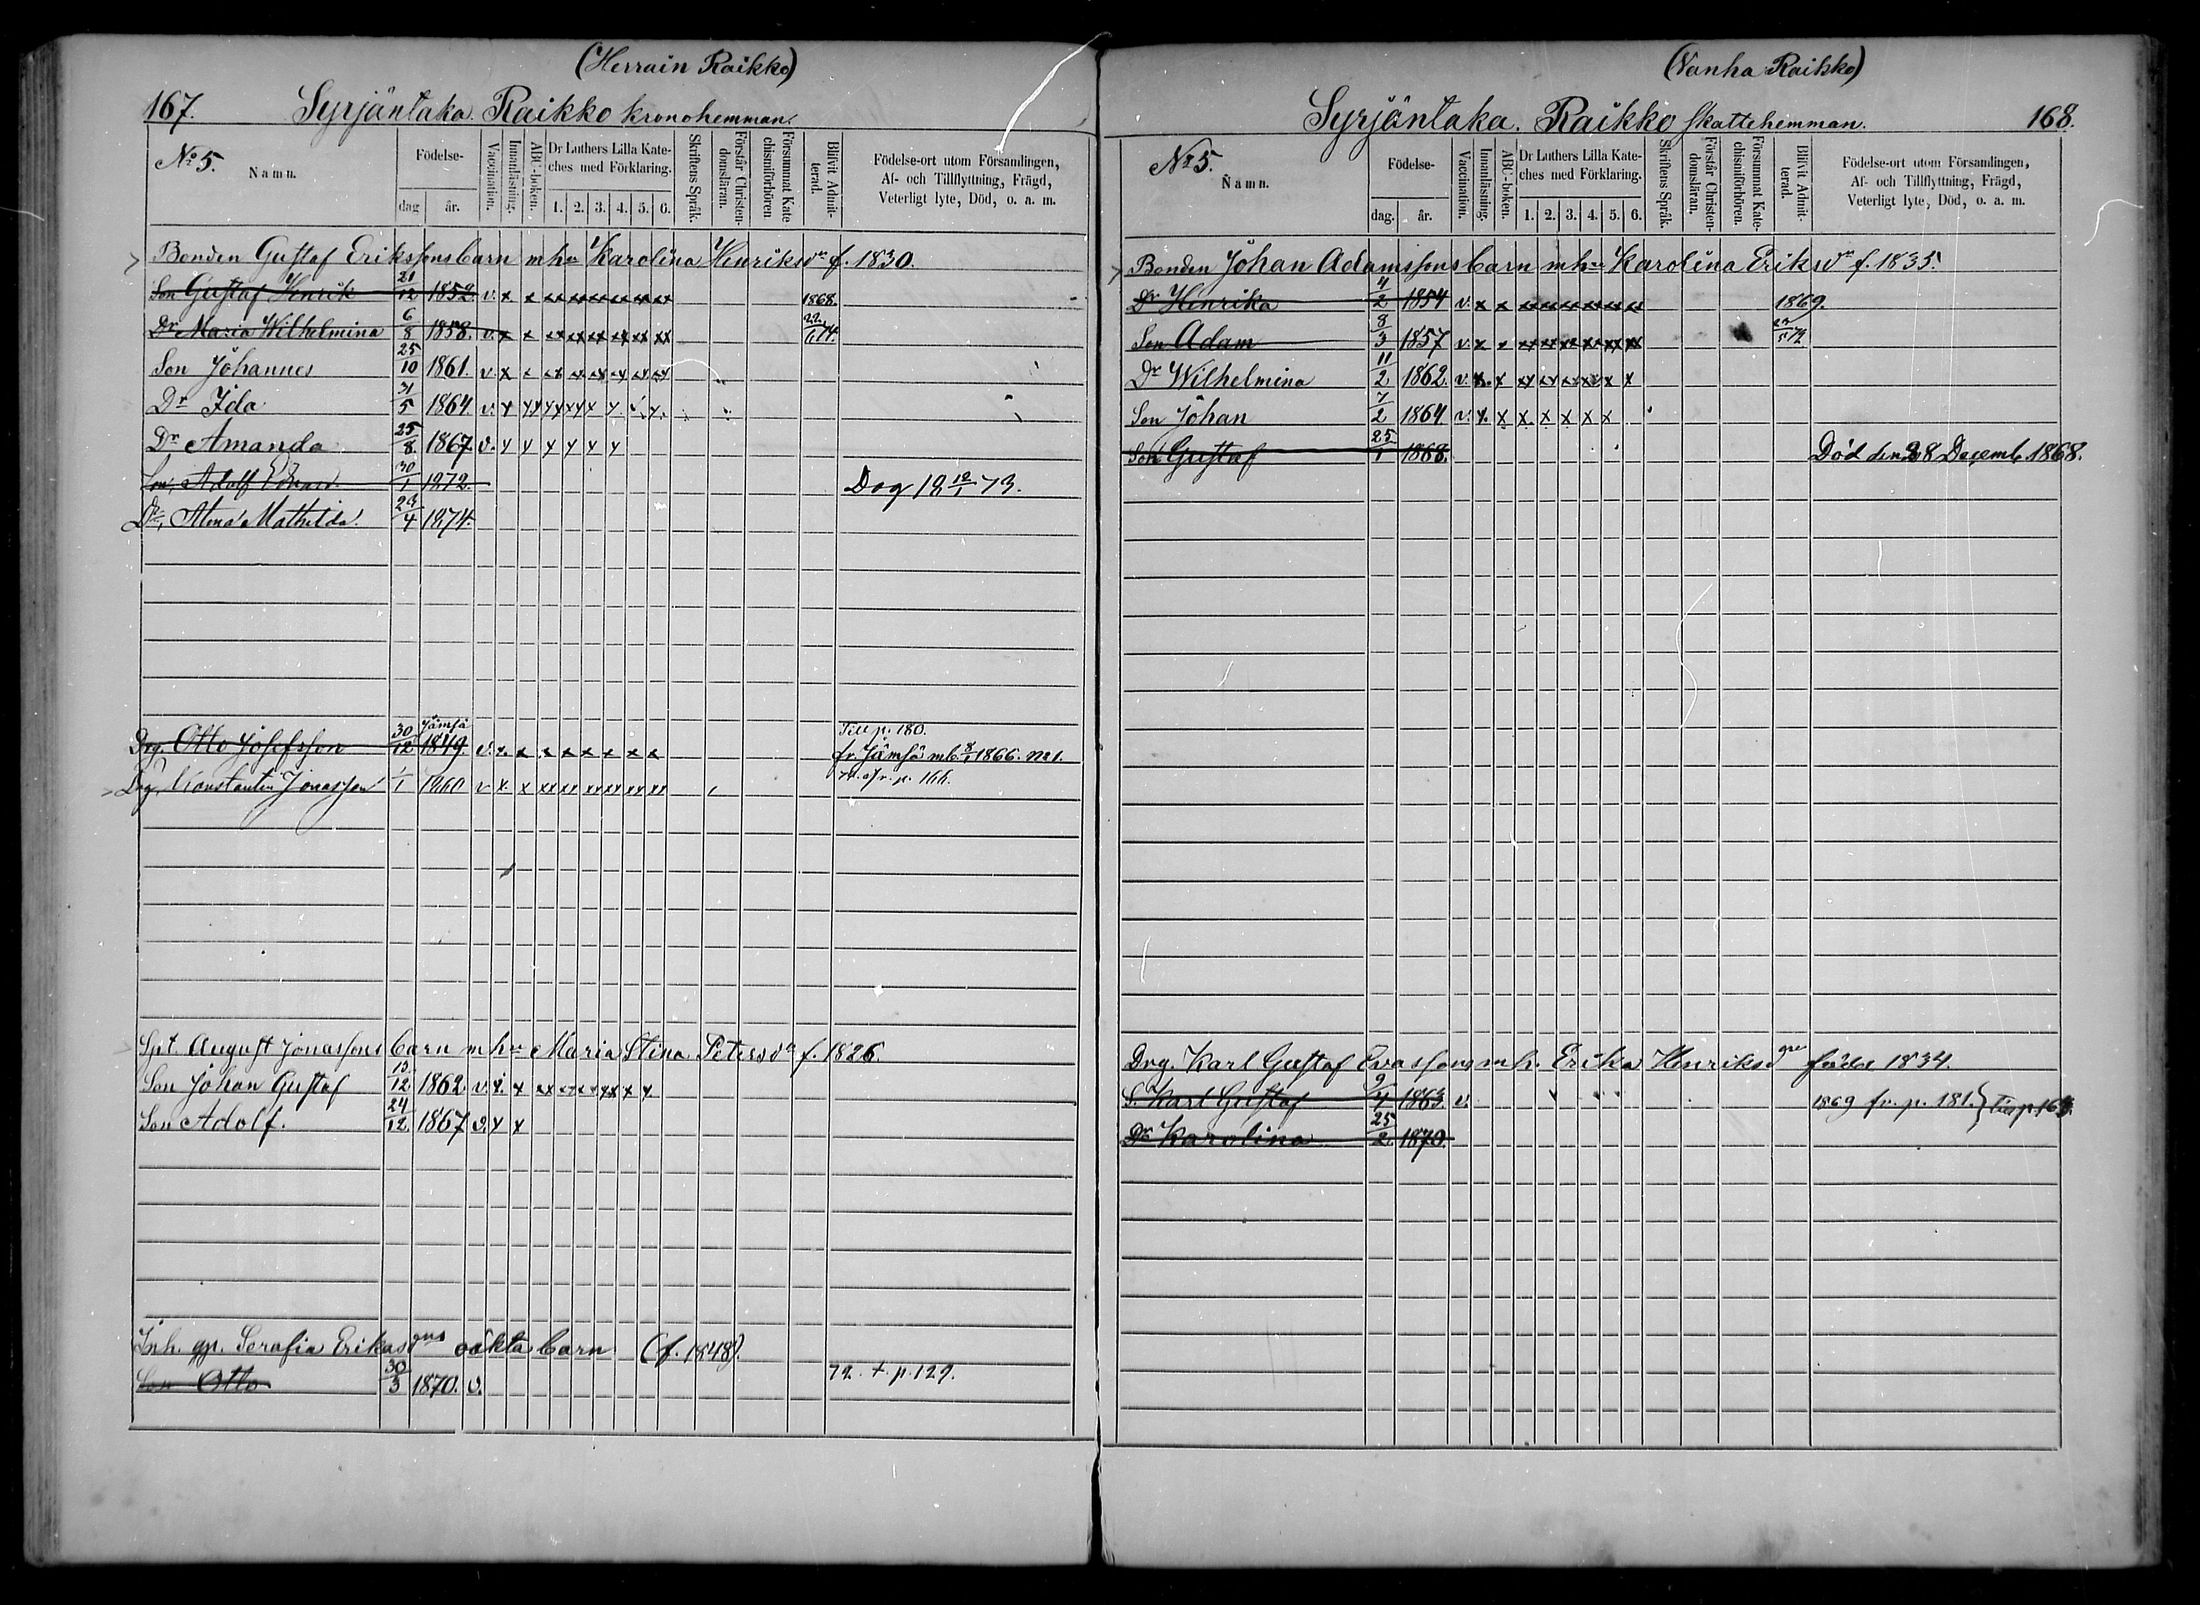 (Herrain Raikko)
167. Syrjäntaka Raikko kronohemman.
No 5.
Namn. Födelse- dag år. Vaccination. Innanläsning. ABC-boken. Dr Luthers Lilla Kateches med Förklaring. 1. 2. 3. 4. 5. 6. Skriftens Språk. Förstår Christendomsläran. Försummat Katechismiförhören Blifvit Admitterad. Födelse-ort utom Församlingen, Af- och Tillflyttning, Frägd, Veterligt lyte, Död, o. a. m.
Bonden Gustaf Erikssons barn m hu Karolina Henriksdr f. 1830.
Son Gustaf Henrik 21/12 1852. v. x x xx xx xx xx xx xx 1868.
Dr Maria Wilhelmina 6/8 1858. v. x x xx xx xx xx xx xx
Son Johannes 25/10 1861. v x
Dr Ida 31/5 1864. v.
Dr Amanda 25/8 1867. v. x x x x x x
Son, Adolf Edvard. 30/1 1872. Dog 18 12/1 73.
Dr, Alma Mathilda. 23/4 1874.
Till p. 180.
Drg. Otto Josefsson 30/12 Jämsä 1849. v. x. x x x x x x x fr. Jämsä mb. 8/1 1866. No 1.
Drg, Konstantin Jonasson 1/1 1860 v x x xx xx xx xx xx xx fr. p. 166.
Spt. August Jonassons barn m hu Maria Stina Petersdr f. 1826.
Son Johan Gustaf 13/12 1862. v. x. x
Son Adolf. 24/12 1867 v. x x
Inh. qp. Serafia Eriksdrs oäkta barn (f. 1848).
Son Otto 30/3 1870. v. 72. + p. 129.
(Vanha Raikko)
Syrjäntaka. Raikko Skattehemman. 168.
No 5.
Namn. Födelse- dag. år. Vaccination. Innanläsning. ABC-boken. Dr Luthers Lilla Kateches med Förklaring. 1. 2. 3. 4. 5. 6. Skriftens Språk. Förstår Christendomsläran. Försummat Katechismiförhören. Blifvit Admitterad. Födelse-ort utom Församlingen, Af- och Tillflyttning, Frägd, Veterligt lyte, Död, o. a. m.
Bonden Johan Adamssons barn m hu Karolina Eriksdr f. 1835.
Dr Henrika 4/2 1854 v. x x xx xx xx xx xx xx 1869.
Son Adam 8/3 1857 v. x x xx xx xx xx xx xx
Dr Wilhelmina 11/2 1862. v. x. x
Son Johan 7/2 1864 v. x. x x x x x x
Son Gustaf 25/1 1868. Död den 28 Decemb. 1868.
Drg. Karl Gustaf Evassons m h. Erika Henriksdr födde 1834.
S. Karl Gustaf 9/4 1863. v. 1869 fr. p. 181.
Dr Karolina 25/2 1870.